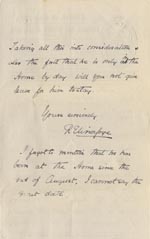 Taking all this into consideration &
also the fact that he is only at the
Home by day will you not give
leave for him to stay
Yours sincerely
I forgot to mention that he has
been at the Home since the
end of August, I cannot say the
exact date